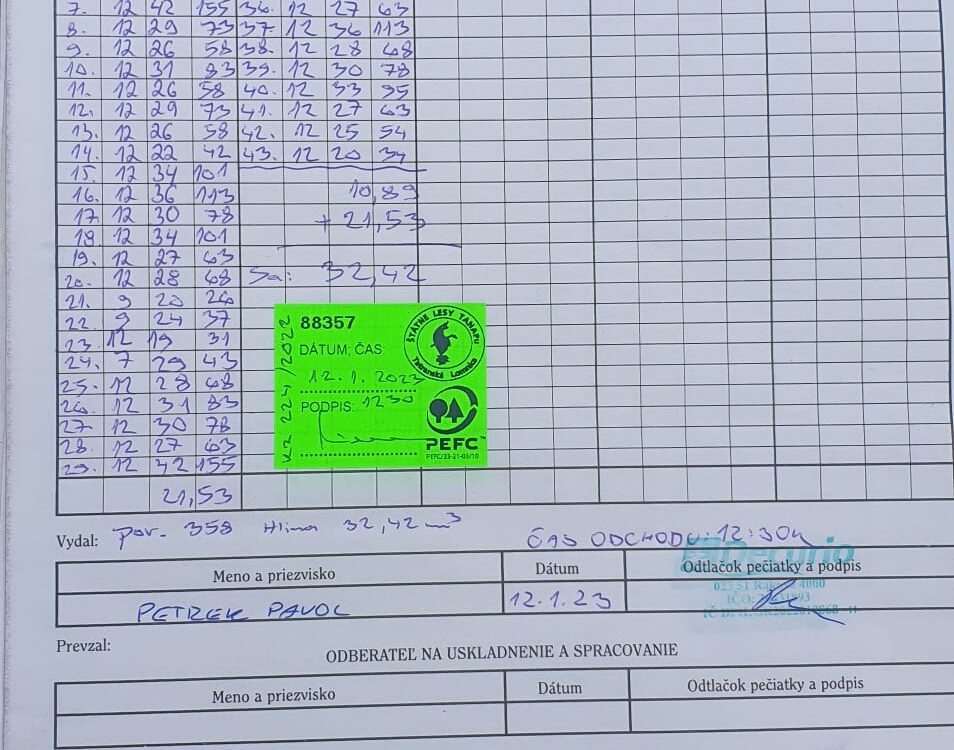 7. 12 42 155 36. 12 27 63
8. 12 29 73 37. 12 36 113
9. 12 26 58 38. 12 28 68
10. 12 31 83 39. 12 30 78
11. 12 26 58 40. 12 33 95
12. 12 29 73 41. 12 27 63
13. 12 26 58 42. 12 25 54
14. 12 22 42 43. 12 20 34
15. 12 34 101
16. 12 36 113 10,89
17. 12 30 78 + 21,53
18. 12 34 101
19. 12 27 63
20. 12 28 68 Sa: 32,42
21. 9 20 26
22. 9 24 37
23. 12 19 31
24. 7 29 43
25. 12 28 68
26. 12 31 83
27. 12 30 78
28. 12 27 63
29. 12 42 155
21,53
88357
DÁTUM, ČAS:
12.1.2023
PODPIS: 1230
224/2022
ŠTÁTNE LESY TANAPU
Tatranská Lomnica
PEFC™
PEFC/23-21-03/10
Vydal: por. 358 Hlina 32,42 m³
ČAS ODCHODU: 12:30h
Decurio
Meno a priezvisko Dátum Odtlačok pečiatky a podpis
PETREK PAVOL 12.1.23
023 51 4000
IČO:
Prevzal:
ODBERATEĽ NA USKLADNENIE A SPRACOVANIE
Meno a priezvisko Dátum Odtlačok pečiatky a podpis